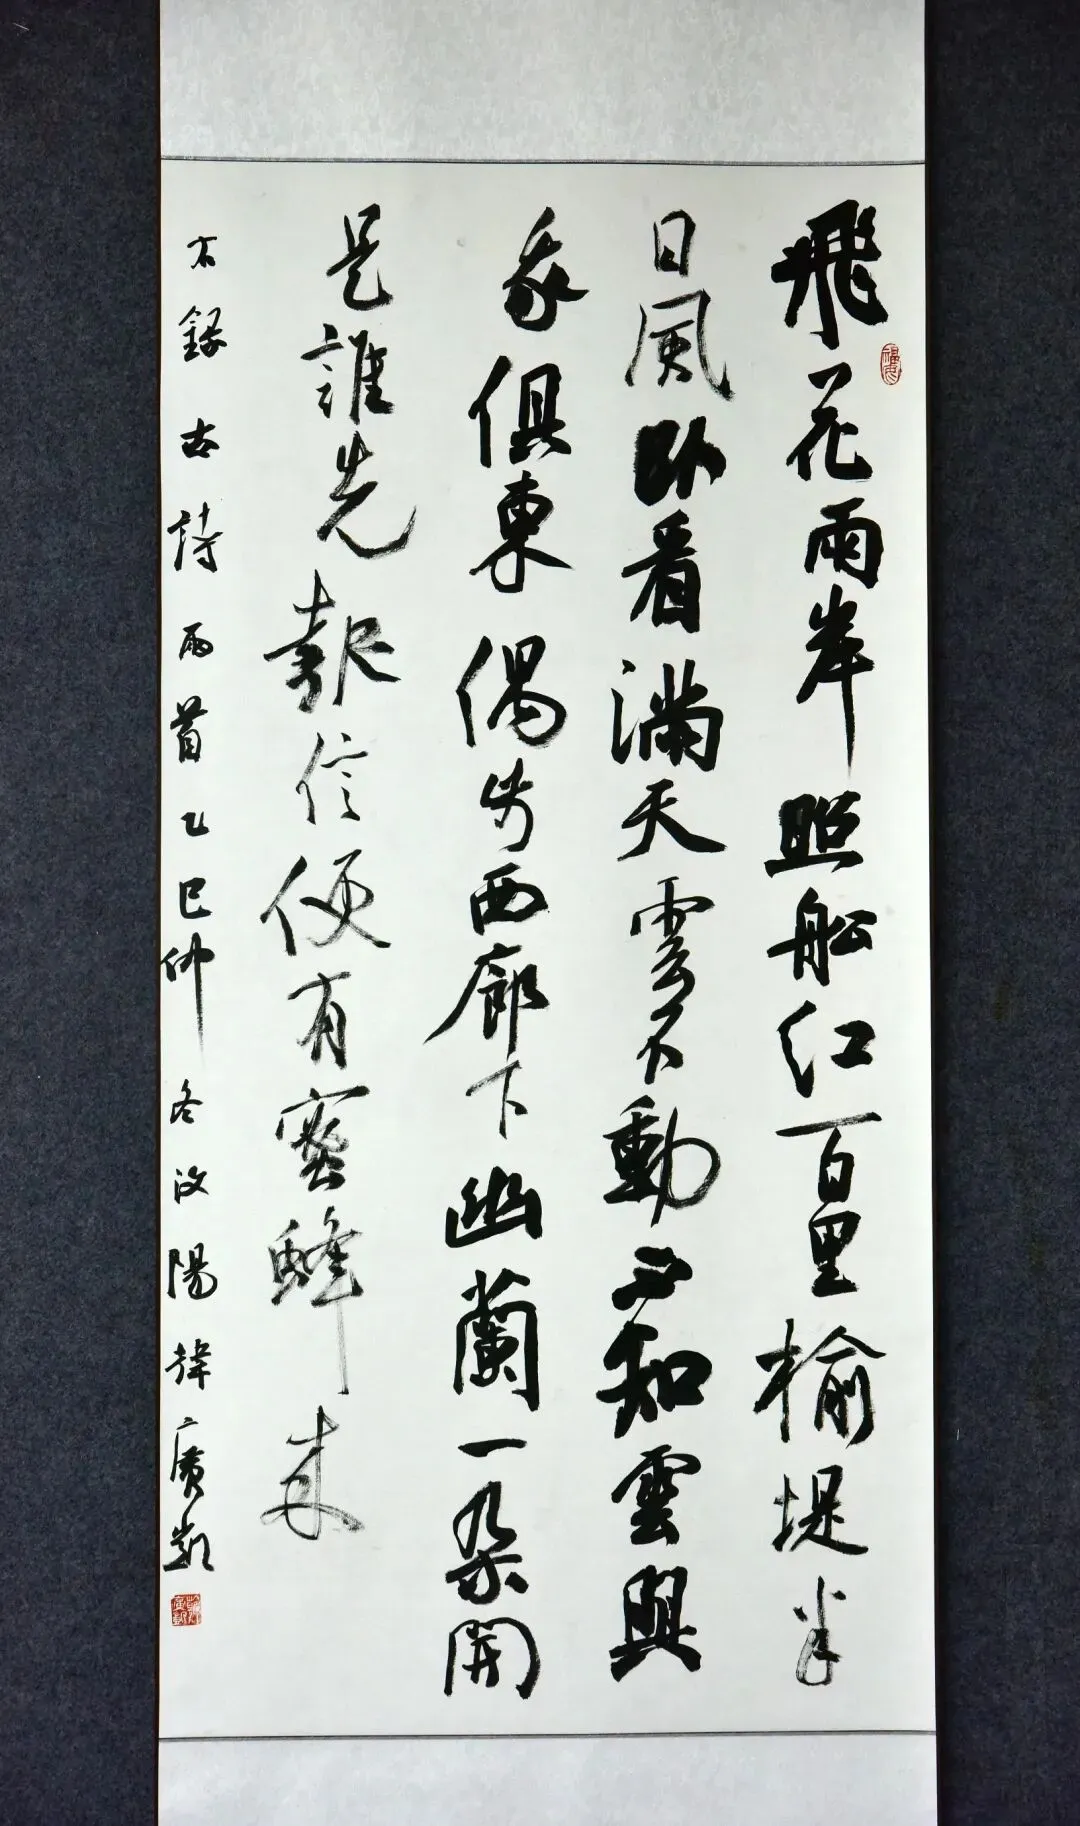 飛花兩岸照船紅百里榆堤半
日風卧看滿天雲不動不知雲與
我俱東偶步西廊下幽蘭一朵開
是誰先報信便有蜜蜂來
右錄古詩兩首乙巳仲冬汶陽韓廣凱